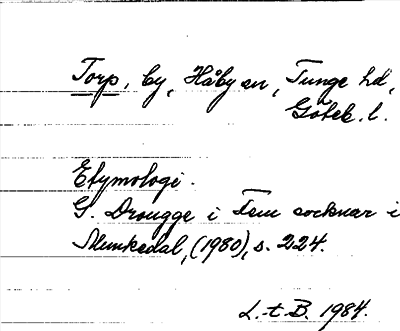 Torp, by, Håby sn, Tunge hd,
Göteb. l.
Etymologi.
G. Drougge i Fem socknar i
Munkedal, (1980), s. 224.
L.-t B. 1984.